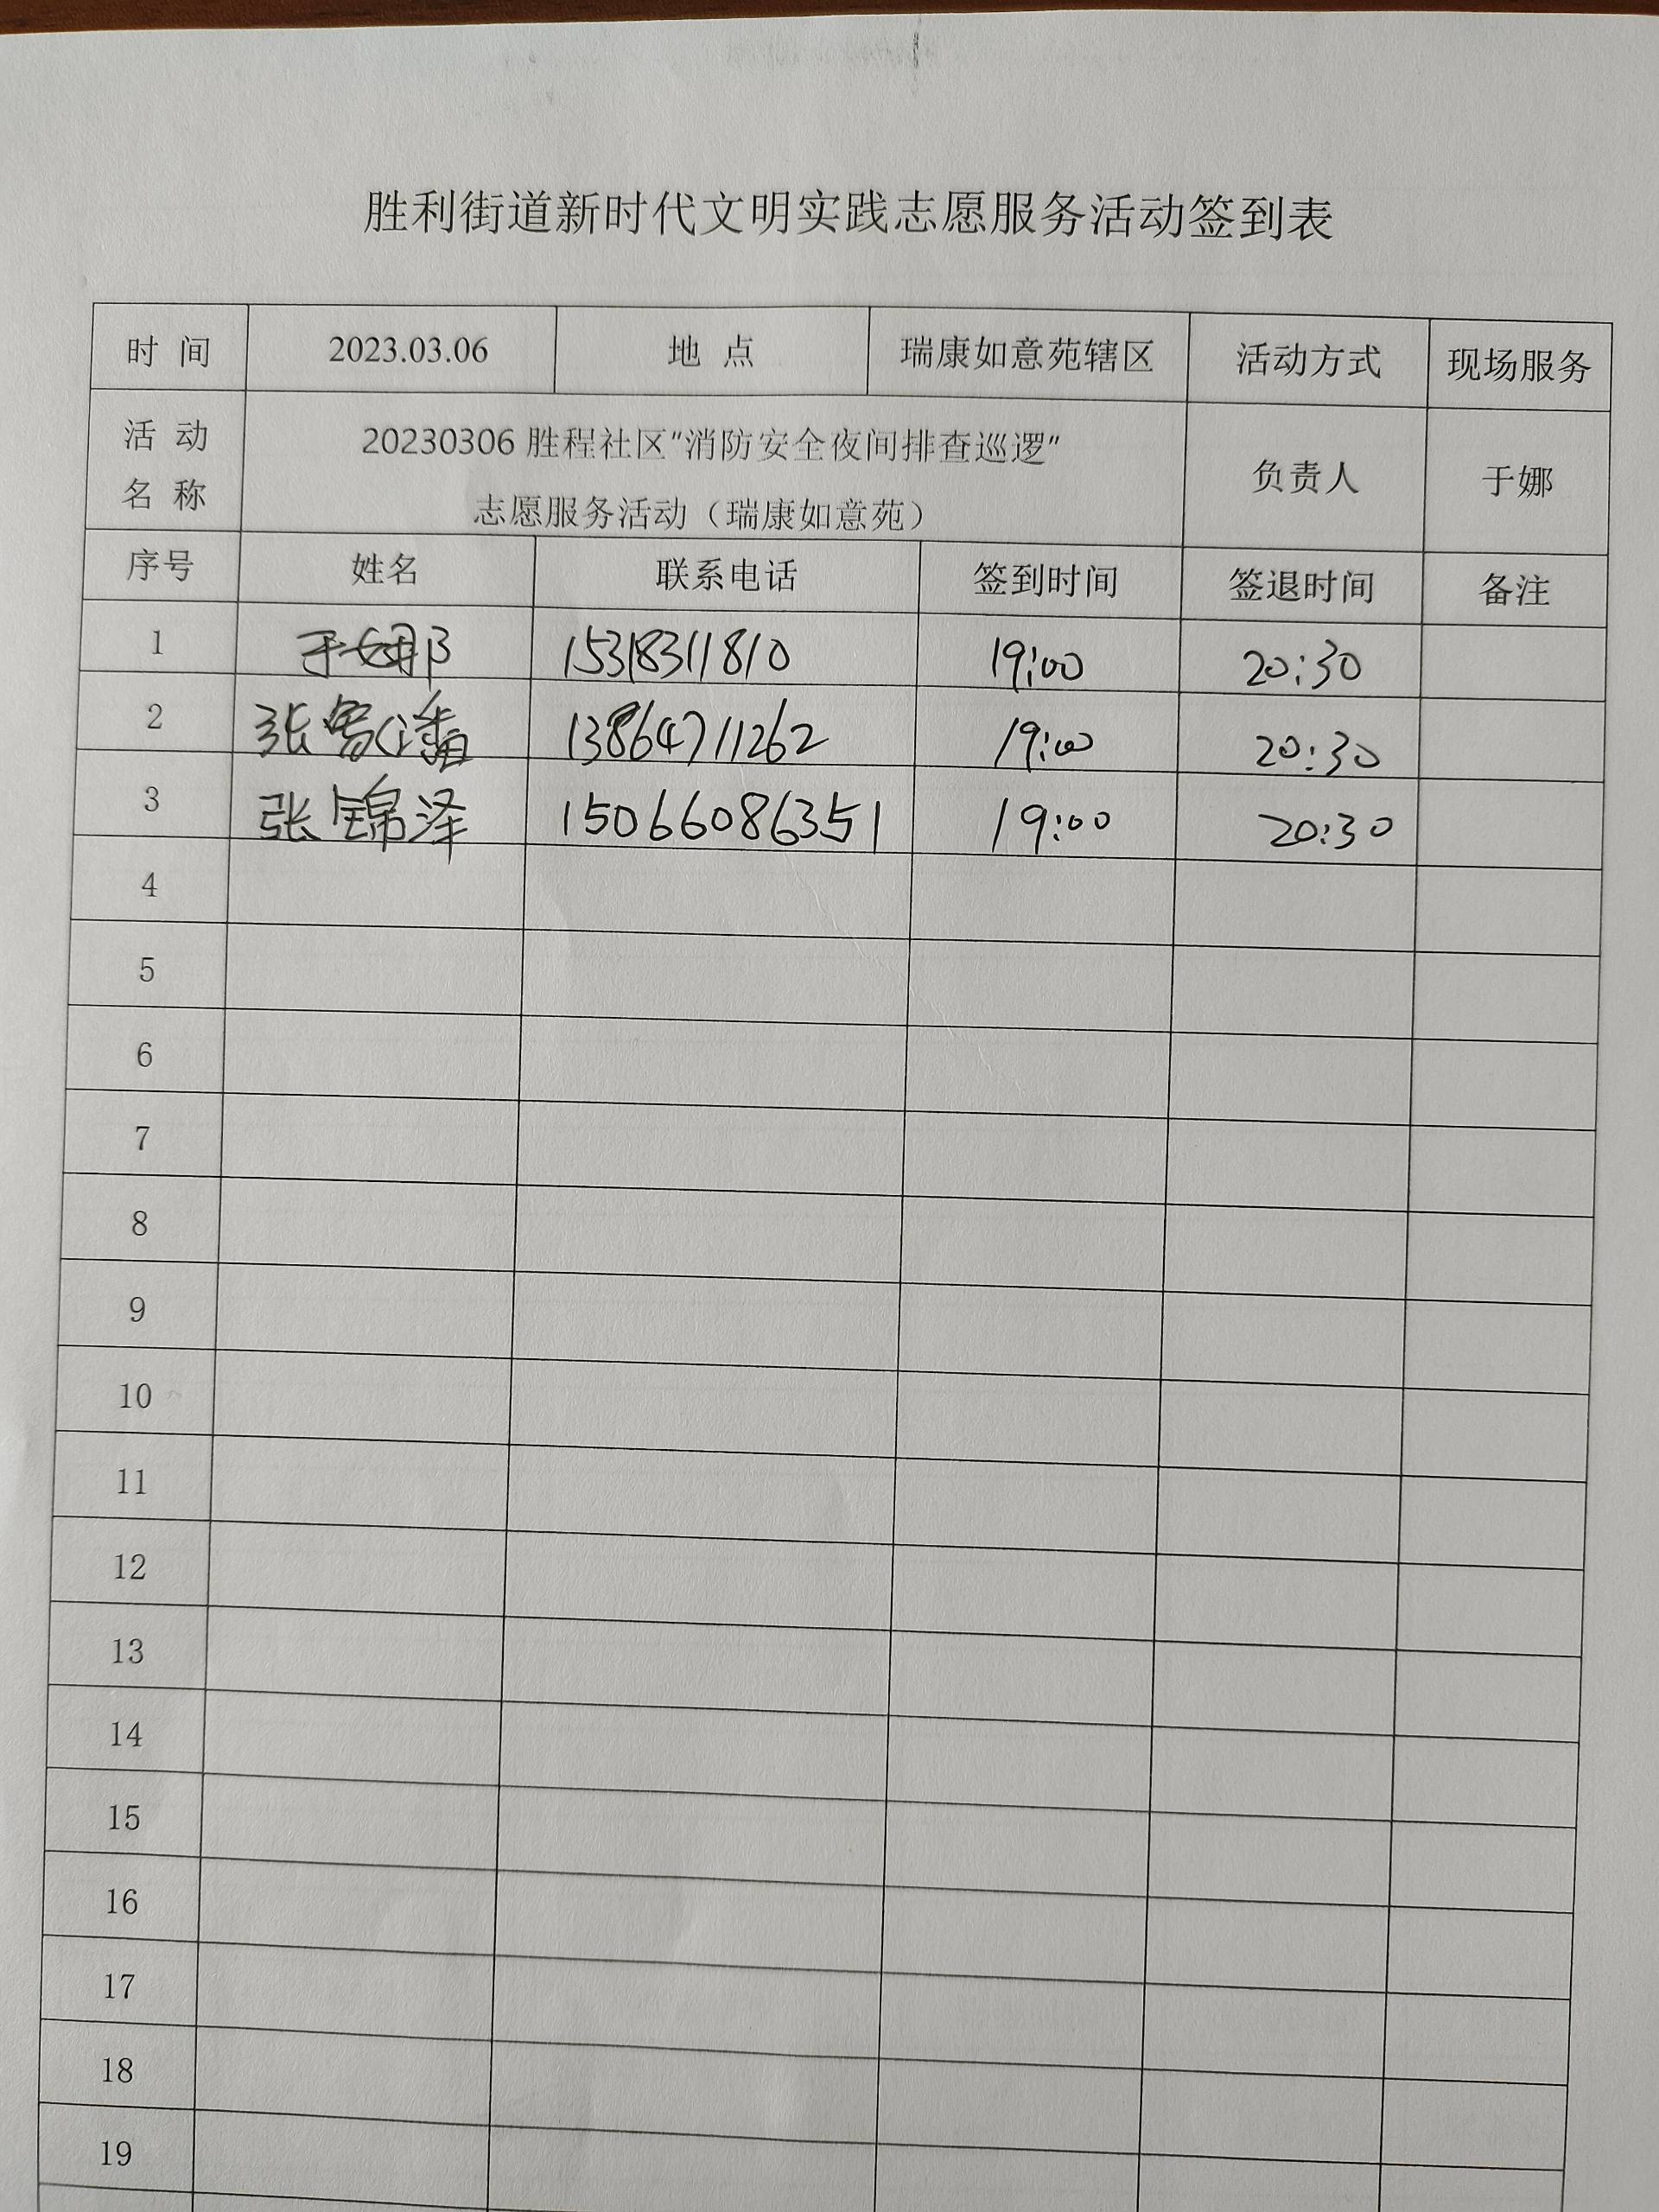 胜利街道新时代文明实践志愿服务活动签到表
时 间 2023.03.06 地 点 瑞康如意苑辖区 活动方式 现场服务
活 动
名 称
20230306 胜程社区"消防安全夜间排查巡逻"
志愿服务活动（瑞康如意苑）
负责人 于娜
序号 姓名 联系电话 签到时间 签退时间 备注
1 于娜 15318311810 19:00 20:30
2 张 13864711262 19:00 20:30
3 张锦泽 15066086351 19:00 20:30
4
5
6
7
8
9
10
11
12
13
14
15
16
17
18
19